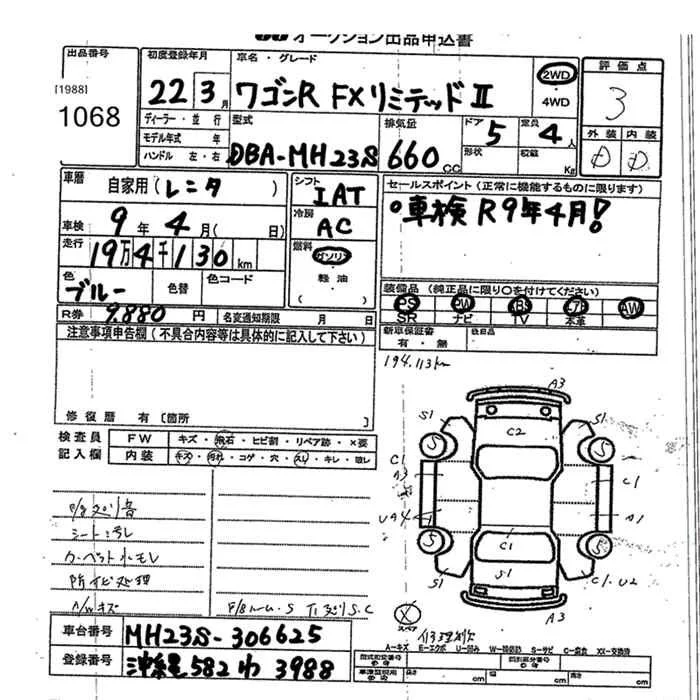 オークション出品申込書
出品番号
[1988]
1068
初度登録年月
22 3月
車名・グレード
ワゴンR FXリミテッドⅡ
2WD
・
4WD
評価点
3
外装 内装
D D
ディーラー・並行
モデル年式 年
ハンドル 左・右
型式
DBA-MH23S
排気量
660 CC
ドア 5
形状
定員 4人
積載 Kg
車歴
自家用(レンタ )
車検 9年 4月( 日)
走行 19万4千130km
色 ブルー
色替
色コード
シフト IAT
冷房 AC
燃料
ガソリン
・
軽油
( )
セールスポイント(正常に機能するものに限ります)
○車検R9年4月!
装備品(純正品に限り○を付けてください)
PS PW ABS エアB AW
SR ナビ TV 本革
新車保証書
有・無
R券 9,880円
名変通知期限 月 日
注意事項申告欄(不具合内容等は具体的に記入して下さい)
修復歴 有〔箇所 〕
194,113km
検査員
記入欄
FW キズ・飛石・ヒビ割・リペア跡・×要
内装 キズ・汚れ・コゲ・穴・スレ・キレ・破レ
シート汚レ
カーペット汚レ
防イビ処理
A/Wキズ
A3
S1 S1
5 5
C2
C1
A3
C1
UA4
A1
5 5
C1
S1
S1
C1.U2
A3
X
スペア
A-キズ E-エクボ U-凹み W-補修跡 S-サビ C-腐食 XX-交換済
車台番号 MH23S-306625
登録番号 沖縄582わ3988
型式指定番号
類別区分番号
長さ cm 幅 cm 高さ cm